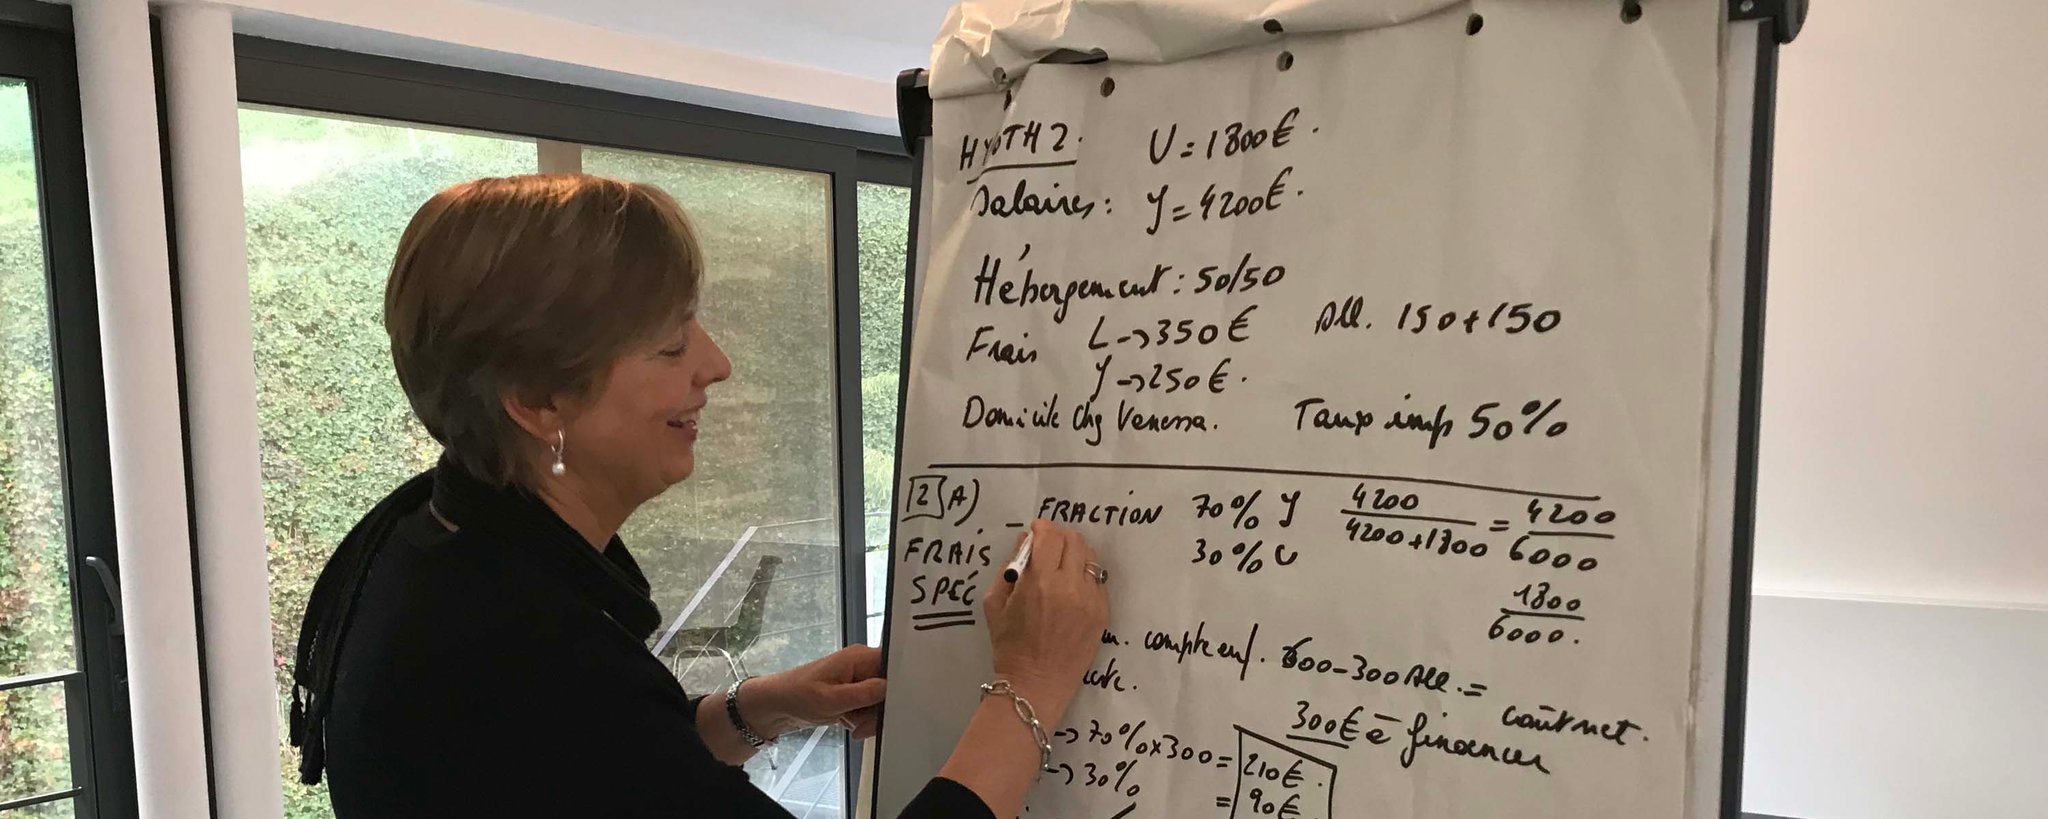 HYPOTH 2. V = 1800€.
Salaires: Y = 4200€.
Hébergement: 50/50
Frais L → 350€ All. 150+150
Y → 250€.
Domicile chz Vanessa. Taux imp 50%
2 A) - FRACTION 70% Y 4200/4200+1800 = 4200/6000
FRAIS 30% V 1800/6000.
SPÉC
compte enf. 600-300 All. = coût net.
300€ à financer
→ 70% x 300 = 210€.
→ 30% = 90€